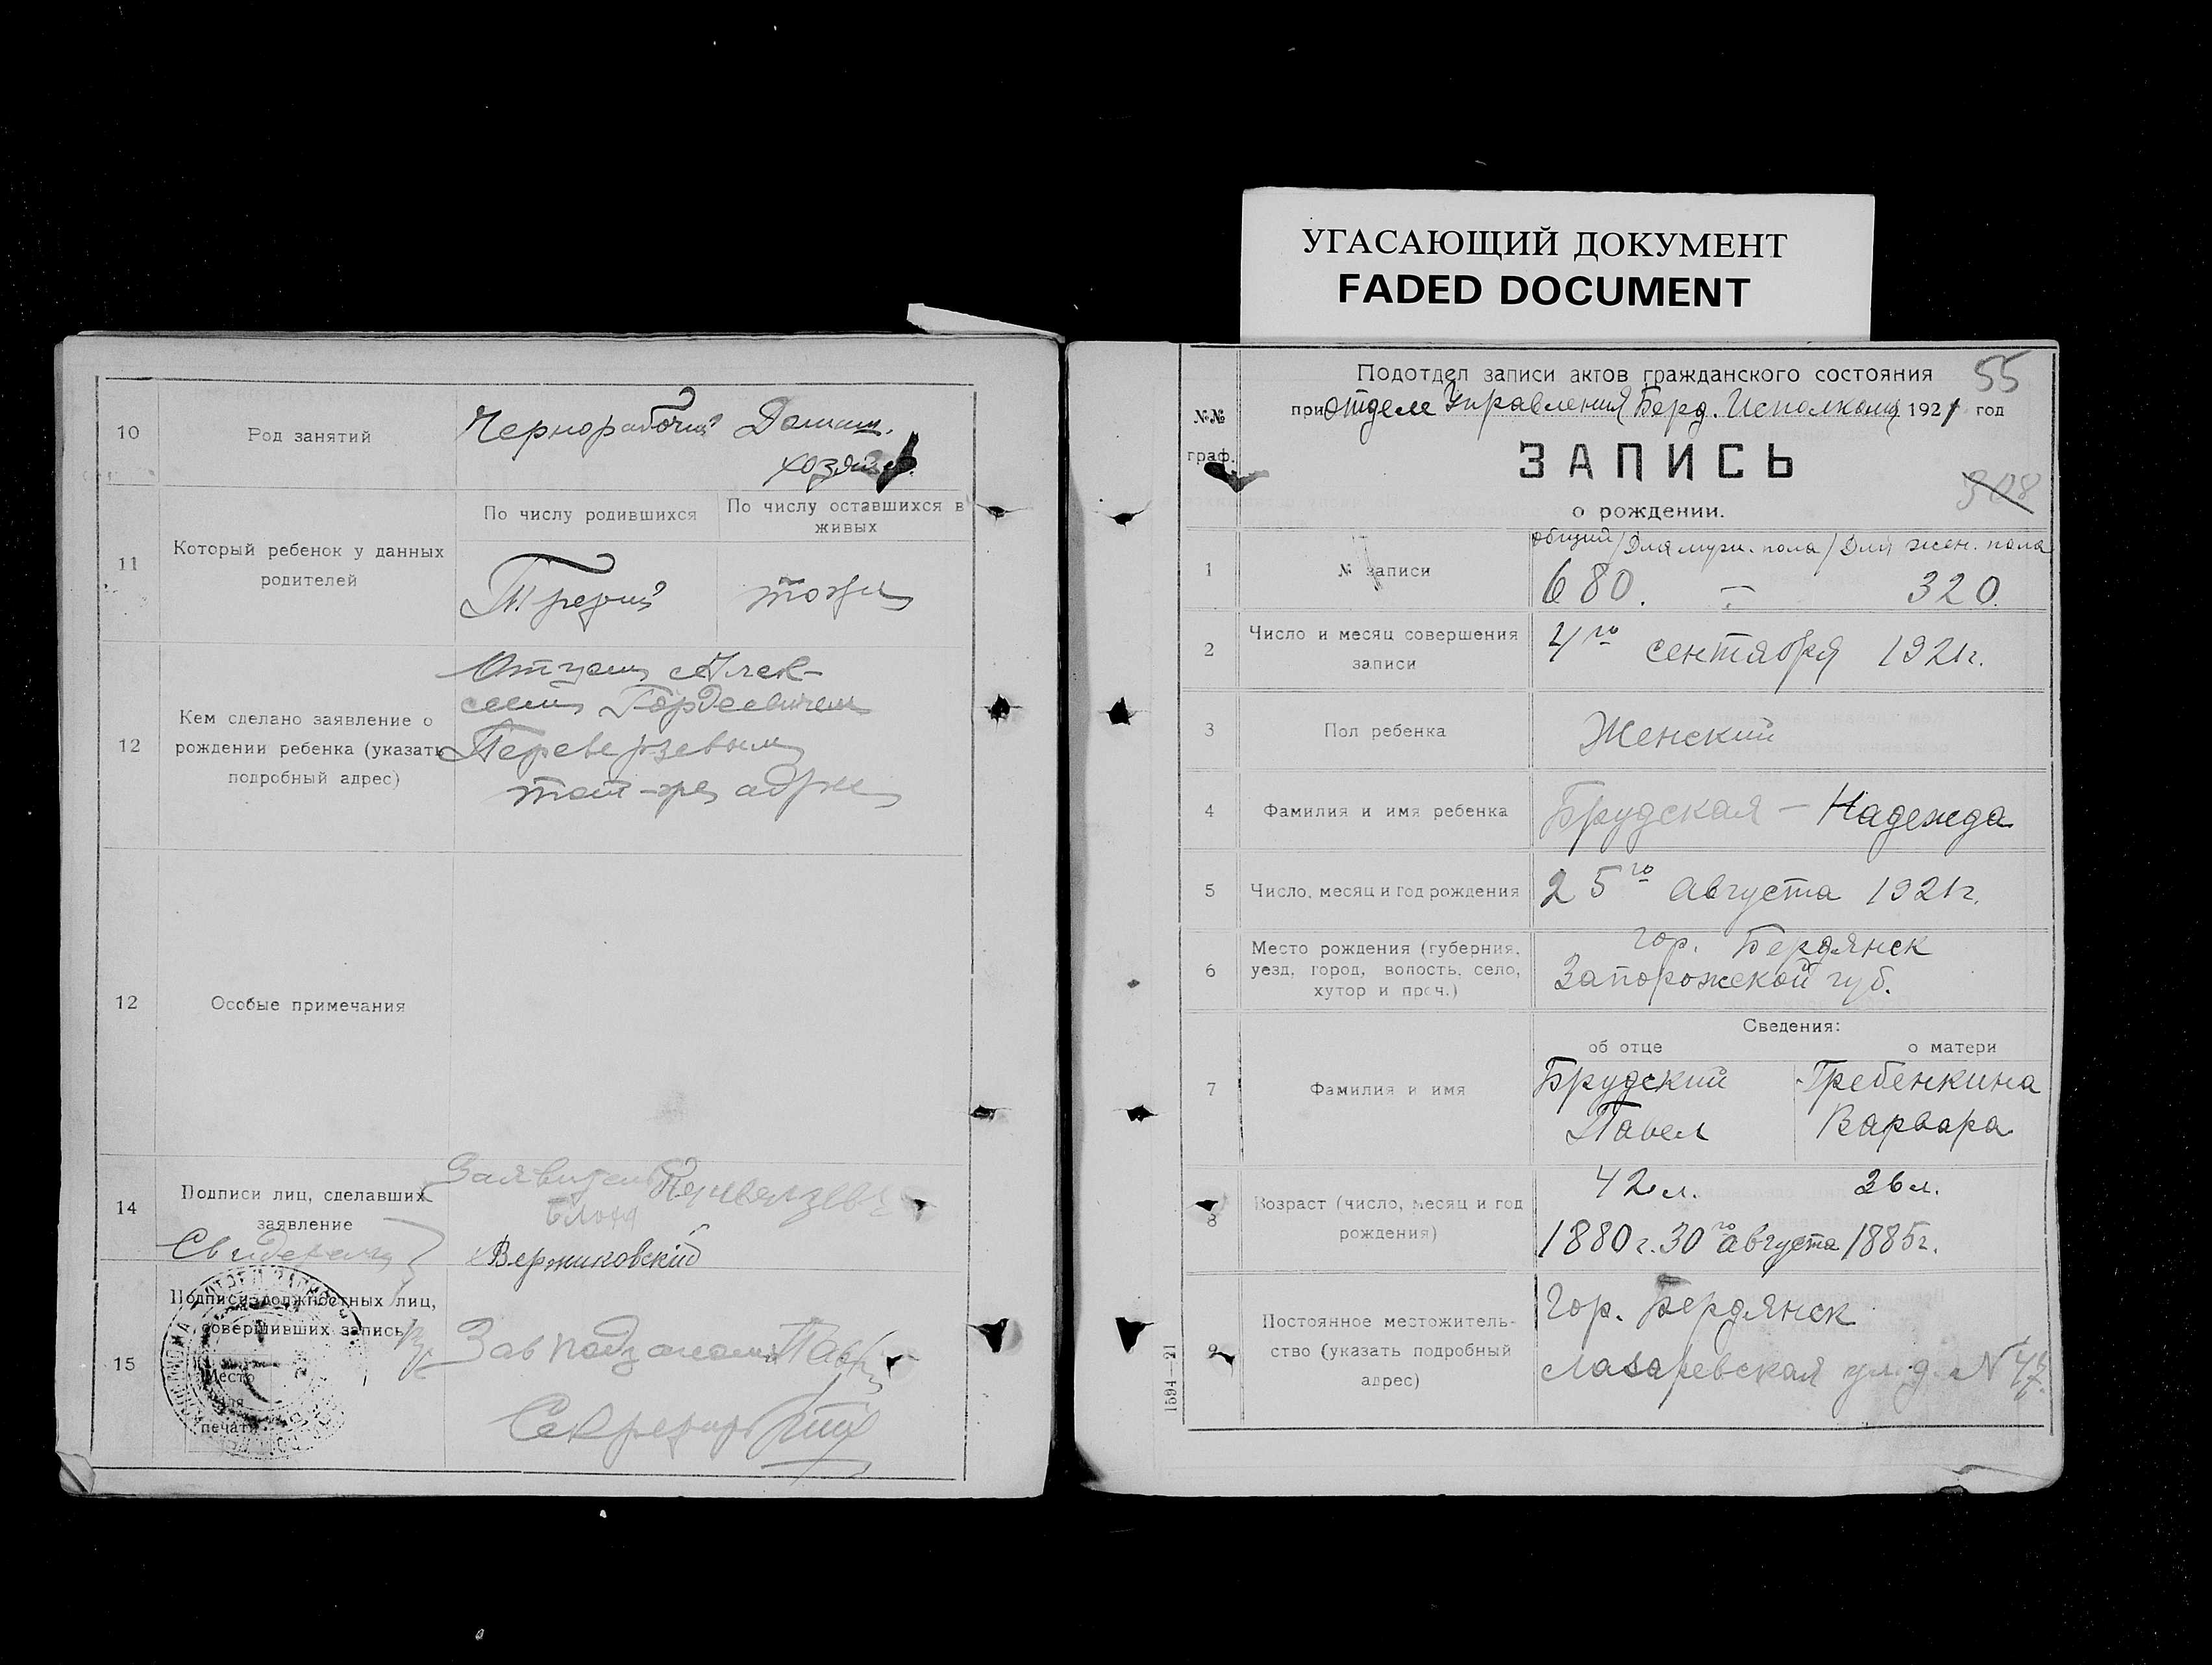 УГАСАЮЩИЙ ДОКУМЕНТ
FADED DOCUMENT
10
Род занятий
Чернорабочий Домаш.
хозяйст.
11
Который ребенок у данных
родителей
По числу родившихся
По числу оставшихся в
живых
Третий
тоже
12
Кем сделано заявление о
рождении ребенка (указать
подробный адрес)
Отцом Алек-
сеем Гордеевичем
Переверзевым
той-же адрес
12
Особые примечания
14
Подписи лиц, сделавших
заявление
Заявитель Переверзевъ
Свидетели
Вержиковскій
15
Подписи должностных лиц,
совершивших запись
Место
для
печати
Зав подзагсом
Секретарь
55
Подотдел записи актов гражданского состояния
при Отделе Управления Берд. Исполкома 1921 год
№№
граф.
ЗАПИСЬ
о рождении.
908
общий / Для муж. пола / Для жен. пола
1
№ записи
680. — 320.
2
Число и месяц совершения
записи
4го сентября 1921г.
3
Пол ребенка
Женский
4
Фамилия и имя ребенка
Брудская — Надежда
5
Число, месяц и год рождения
25го Августа 1921г.
6
Место рождения (губерния,
уезд, город, волость, село,
хутор и проч.)
гор. Бердянск
Запорожской губ.
Сведения:
об отце
о матери
7
Фамилия и имя
Брудский
Павел
Гребенкина
Варвара
8
Возраст (число, месяц и год
рождения)
42 л. 36 л.
1880г. 30го августа 1885г.
9
Постоянное местожитель-
ство (указать подробный
адрес)
Гор. Бердянск
Лазаревская ул. д. №
1594—21